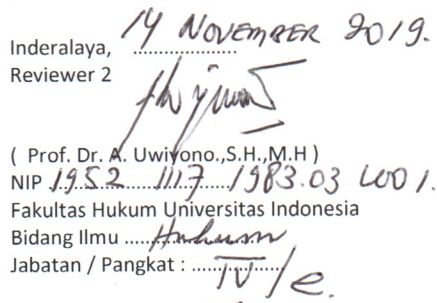 Inderalaya, 14 NOVEMBER 2019.
Reviewer 2
( Prof. Dr. A. Uwiyono.,S.H.,M.H )
NIP 1952 1117 1983.03 1001.
Fakultas Hukum Universitas Indonesia
Bidang Ilmu ....Hukum
Jabatan / Pangkat : ....IV/e.